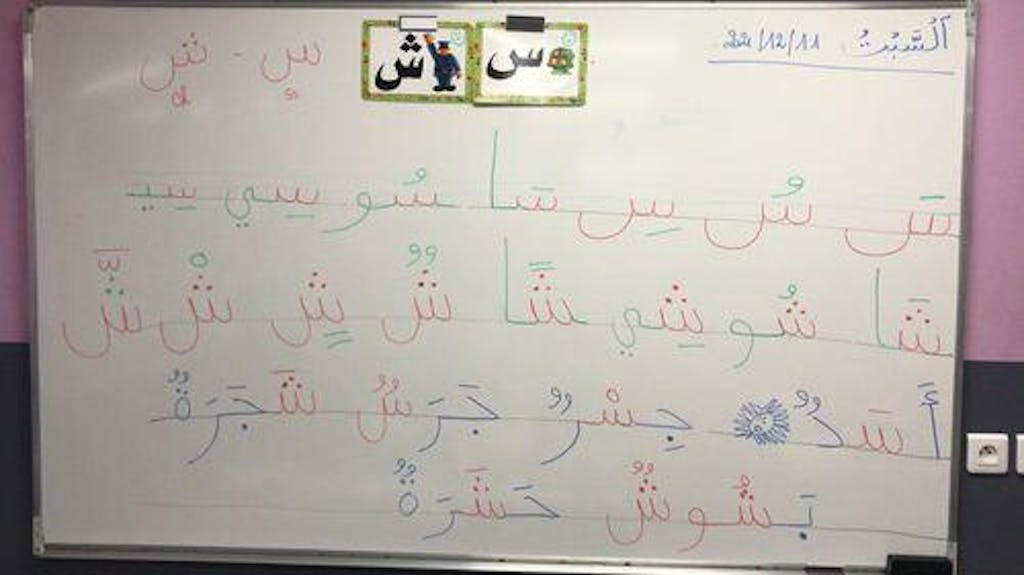 اَلسَّبْتُ 2021/12/11
س ش
سٍ - شٍ
سَ سُ سِ سا سُو سِي سِيـ
شَا شُو شِي شًّا شٌ شٍ شْ شّ
أَسَدٌ جِسْرٌ جَرَسٌ شَجَرَةٌ
بَشُوشٌ حَشَرَةٌ